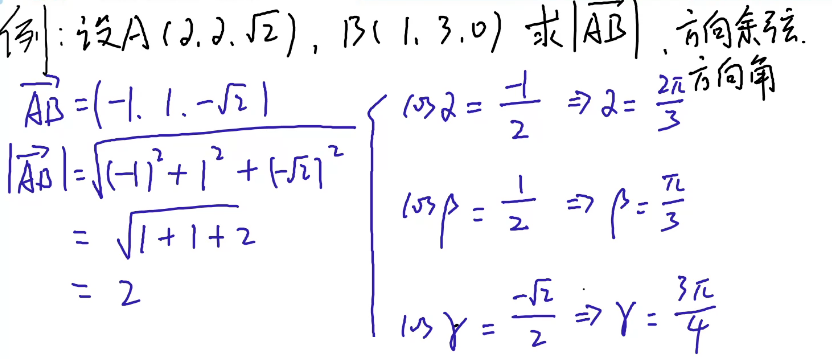 例:设A(2,2,√2),B(1,3,0)求|AB|,方向余弦.
方向角
AB=(-1,1,-√2)
|AB|=√((-1)²+1²+(-√2)²)
=√(1+1+2)
=2
cosα=-1/2⇒α=2π/3
cosβ=1/2⇒β=π/3
cosγ=-√2/2⇒γ=3π/4